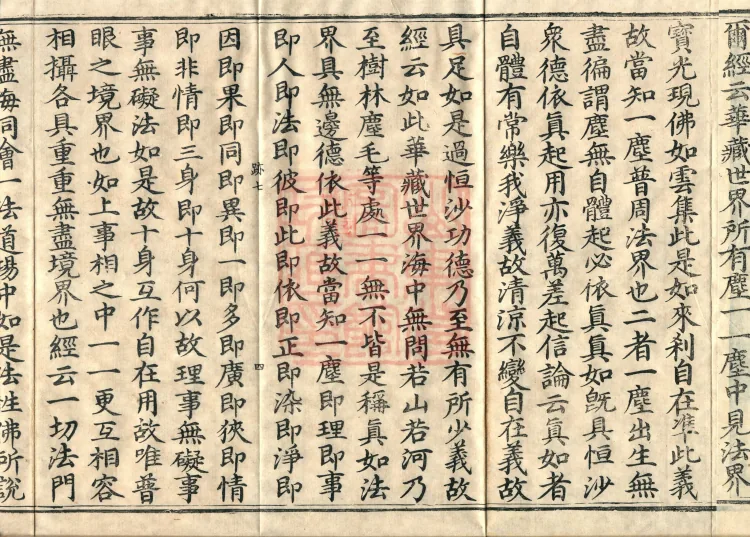 爾經云華藏世界所有塵一一塵中見法界
寶光現佛如雲集此是如來刹自在準此義
故當知一塵普周法界也二者一塵出生無
盡徧謂塵無自體起必依真真如旣具恒沙
衆德依真起用亦復萬差起信論云真如者
自體有常樂我淨義故清涼不變自在義故
具足如是過恒沙功德乃至無有所少義故
經云如此華藏世界海中無問若山若河乃
至樹林塵毛等處一一無不皆是稱真如法
界具無邊德依此義故當知一塵即理即事
即人即法即彼即此即依即正即染即淨即
跡七
四
因即果即同即異即一即多即廣即狹即情
即非情即三身即十身何以故理事無礙事
事無礙法如是故十身互作自在用故唯普
眼之境界也如上事相之中一一更互相容
相攝各具重重無盡境界也經云一切法門
無盡海同會一法道場中如是法性佛所說